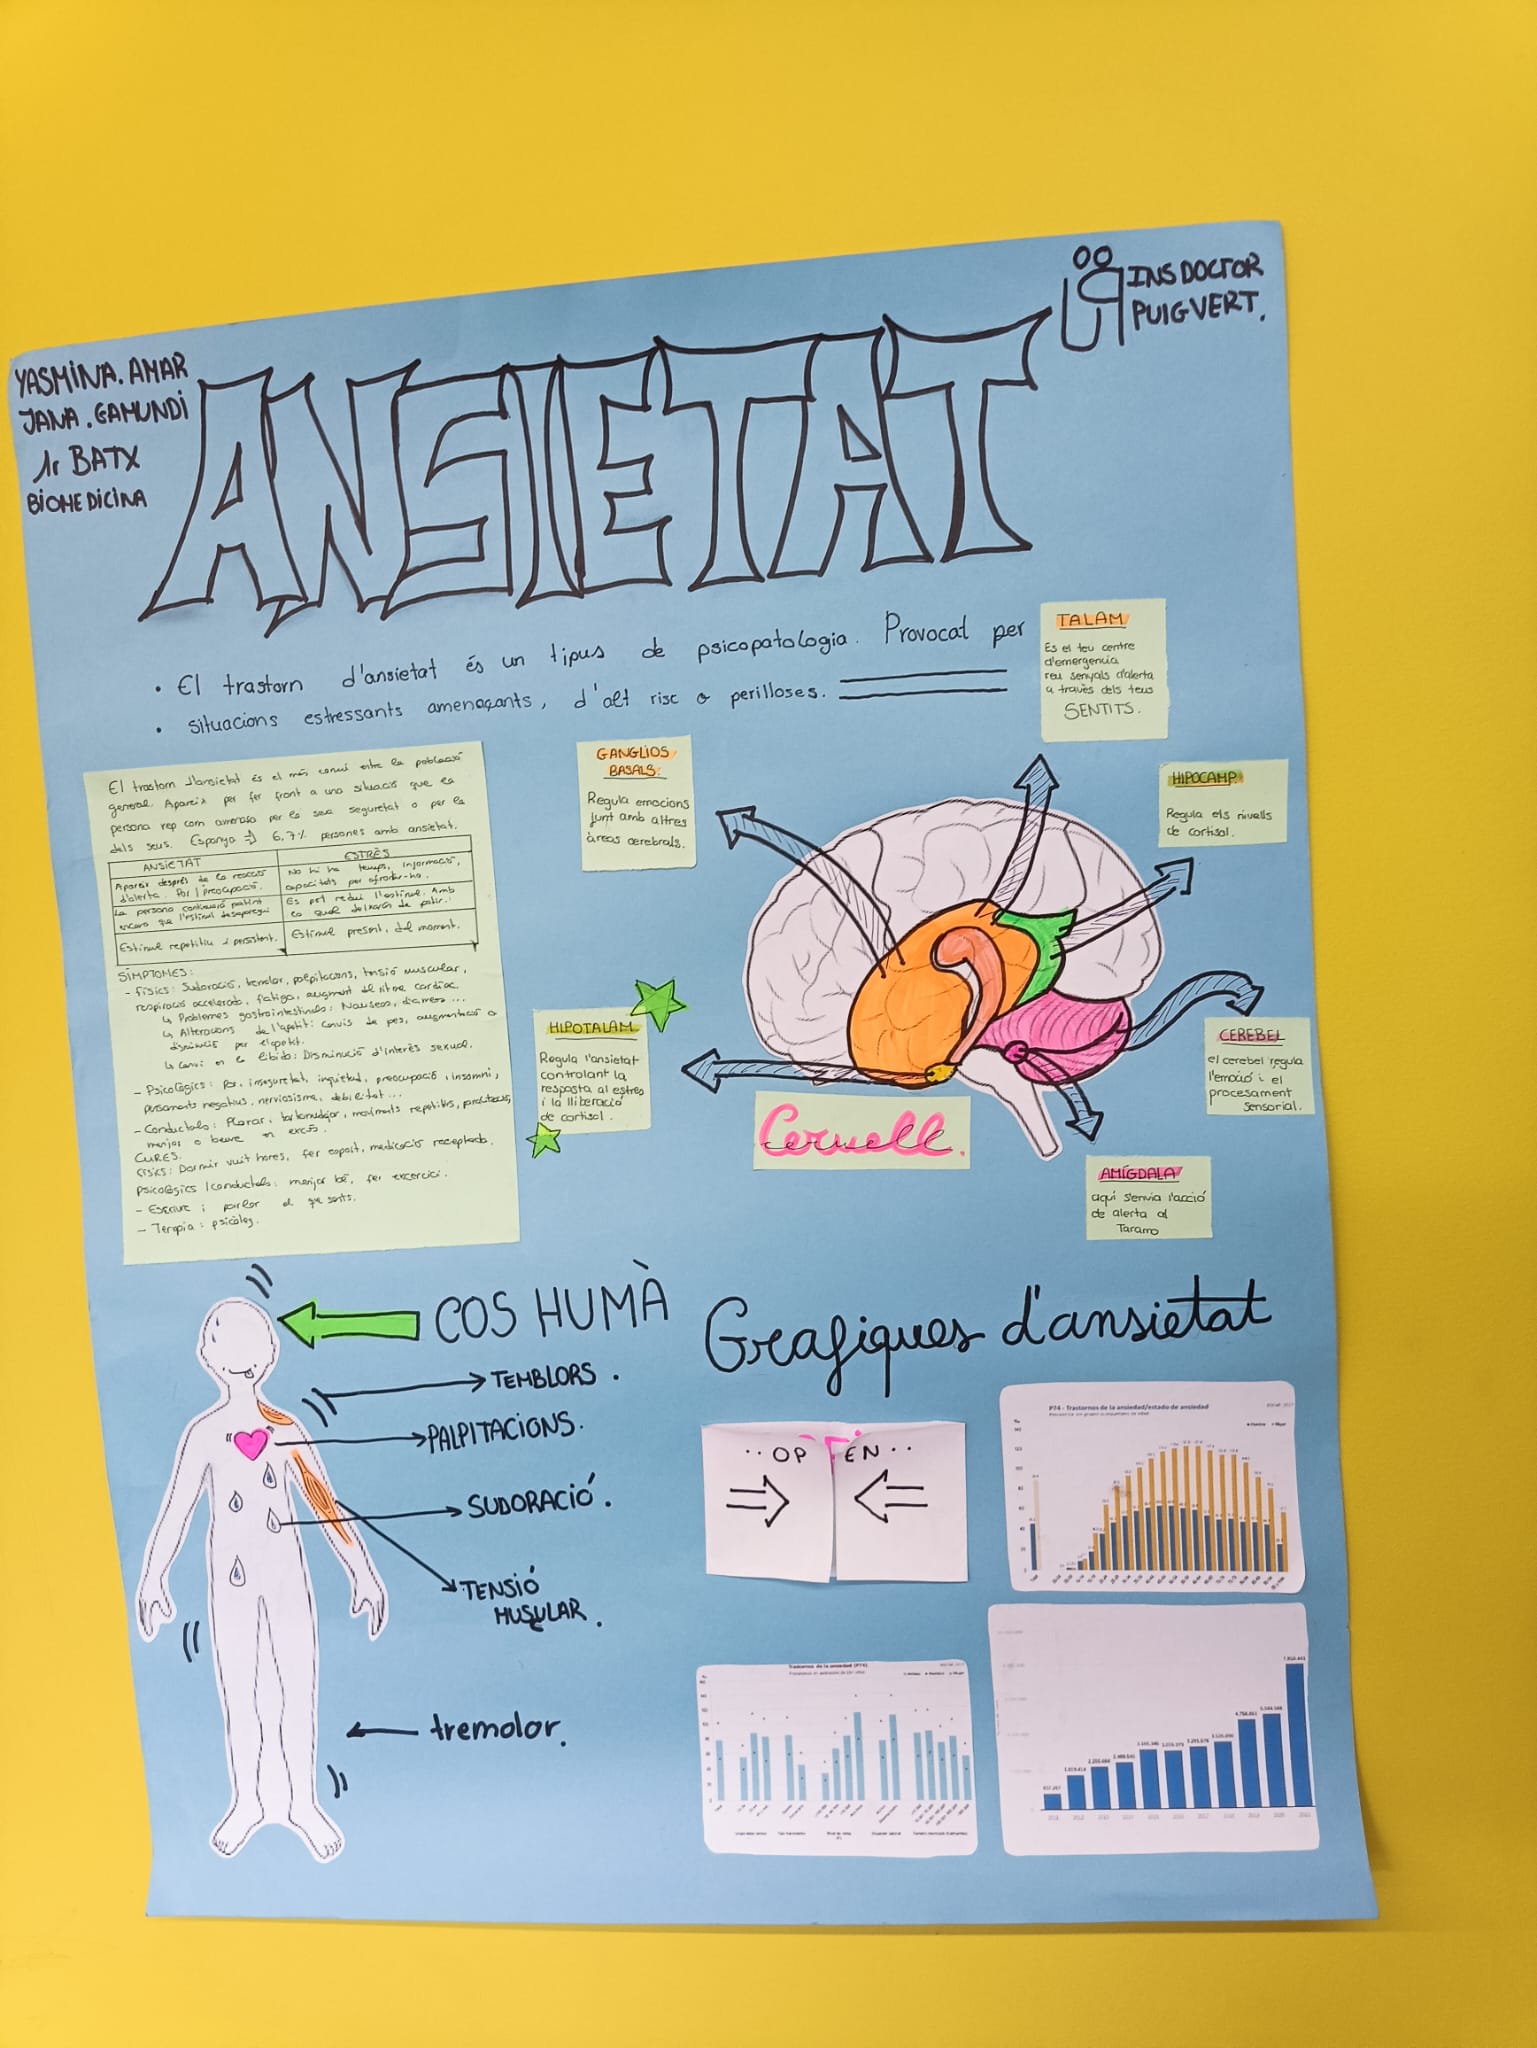 INS DOCTOR
PUIGVERT.
YASMINA. AMAR
JANA. GAMUNDI
1r BATX
BIOMEDICINA
ANSIETAT
• El trastorn d'ansietat és un tipus de psicopatologia. Provocat per
• situacions estressants amenaçants, d'alt risc o perilloses.
TALAM
Es el teu centre
d'emergencia
reu senyals d'alerta
a través dels teus
SENTITS.
GANGLIOS
BASALS:
Regula emocions
junt amb altres
àrees cerebrals.
HIPOCAMP
Regula els nivells
de cortisol.
El trastorn d'ansietat és el més comú entre la població
general. Apareix per fer front a una situació que la
persona rep com amenaça per la seva seguretat o per la
dels seus. Espanya → 6,7% persones amb ansietat.
ANSIETAT
ESTRÈS
Apareix després de la reacció
d'alerta. Por / preocupació.
No hi ha temps, informació,
capacitats per afrontar-ho.
La persona continuarà patint
encara que l'estímul desaparegui
Es pot reduir l'estímul. Amb
la qual deixarà de patir.
Estímul repetitiu i persistent.
Estímul present, del moment.
SÍMPTOMES:
- Físics: Sudoració, tremolor, palpitacions, tensió muscular,
respiració accelerada, fatiga, augment del ritme cardíac.
↳ Problemes gastrointestinals: Nausees, diarrees ...
↳ Alteracions de l'apetit: canvis de pes, augmentació o
disminució per l'apetit.
↳ canvi en la libido: Disminució d'interès sexual.
- Psicològics: Por, inseguretat, inquietud, preocupació, insomni,
pensaments negatius, nerviosisme, debilitat ...
- Conductals: Plorar, tartamudejar, moviments repetitius,
menjar o beure en excés.
CURES.
Físics: Dormir vuit hores, fer esport, medicació receptada.
Psicològics / conductals: menjar bé, fer excercici.
- Escriure i parlar el que sents.
- Terapia: psicòleg.
HIPOTALAM
Regula l'ansietat
controlant la
resposta al estres
i la lliberació
de cortisol.
CEREBEL
el cerebel regula
l'emoció i el
procesament
sensorial.
Cervell.
AMÍGDALA
aquí s'envia l'acció
de alerta al
Taramo
COS HUMÀ
TEMBLORS.
PALPITACIONS.
SUDORACIÓ.
TENSIÓ
MUSCULAR.
tremolor.
Grafiques d'ansietat
··OP EN··
P74 - Trastornos de la ansiedad/estado de ansiedad
Trastornos de la ansiedad (P74)
7.816.441